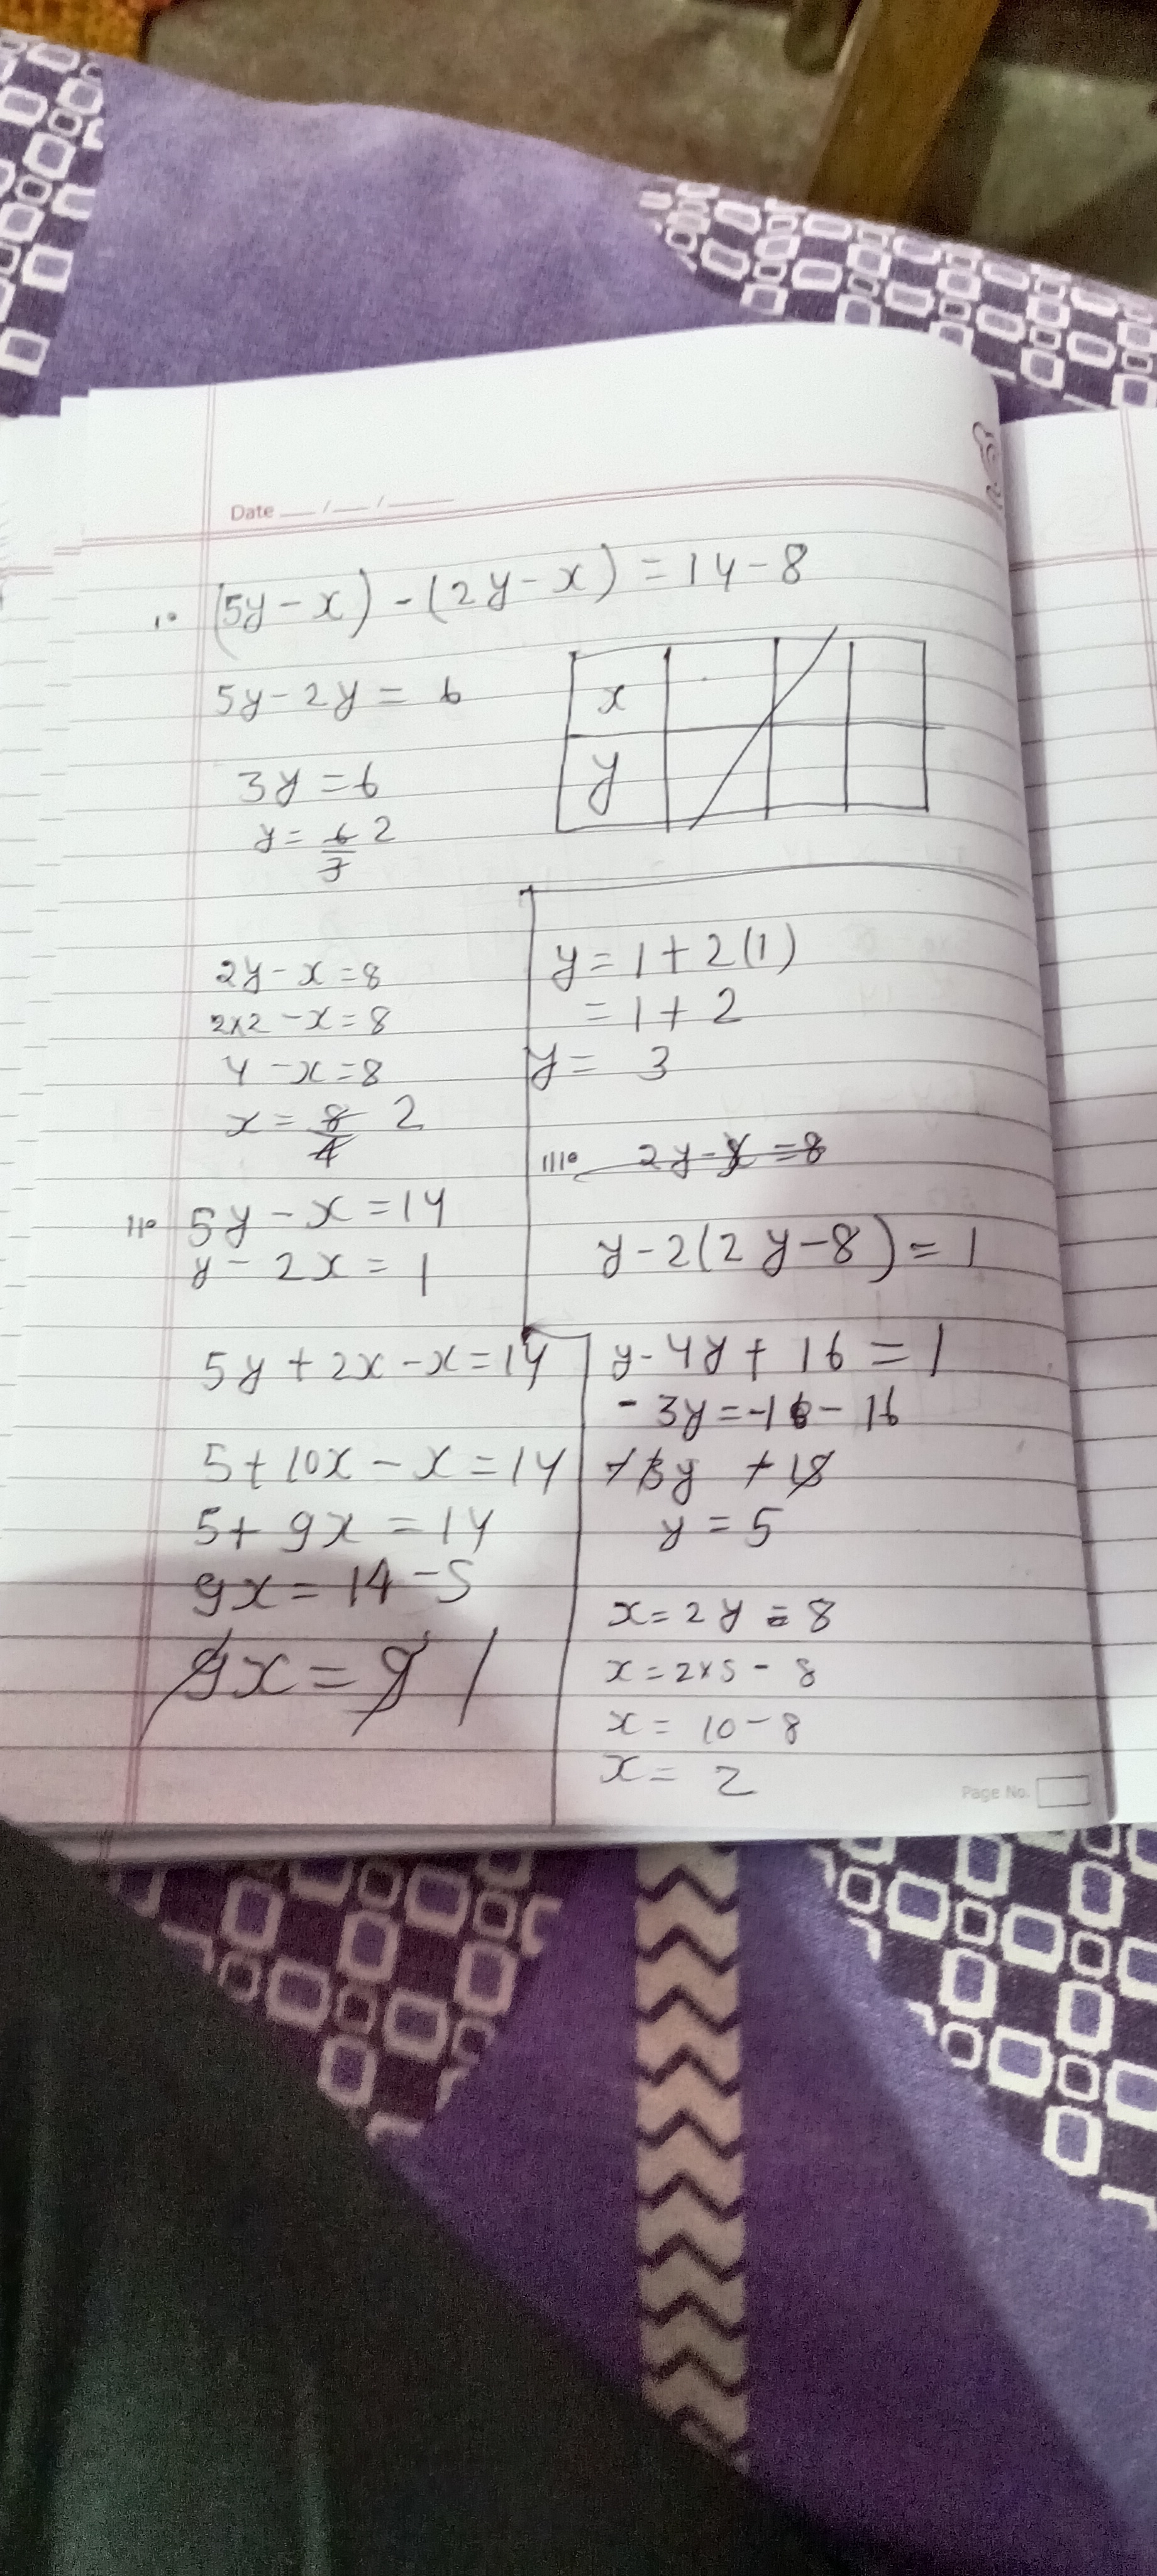 Date __/__/____
1. (5y - x) - (2y - x) = 14 - 8
5y - 2y = 6
x
y
3y = 6
y = 6/3 2
2y - x = 8
2x2 - x = 8
4 - x = 8
x = 8/4 2
11. 5y - x = 14
y - 2x = 1
5y + 2x - x = 14
5 + 10x - x = 14
5 + 9x = 14
9x = 14 - 5
9x = 9 1
y = 1 + 2(1)
= 1 + 2
y = 3
111. 2y - x = 8
y - 2(2y - 8) = 1
y - 4y + 16 = 1
- 3y = -16 - 16
y = 5
x = 2y = 8
x = 2x5 - 8
x = 10 - 8
x = 2
Page No.